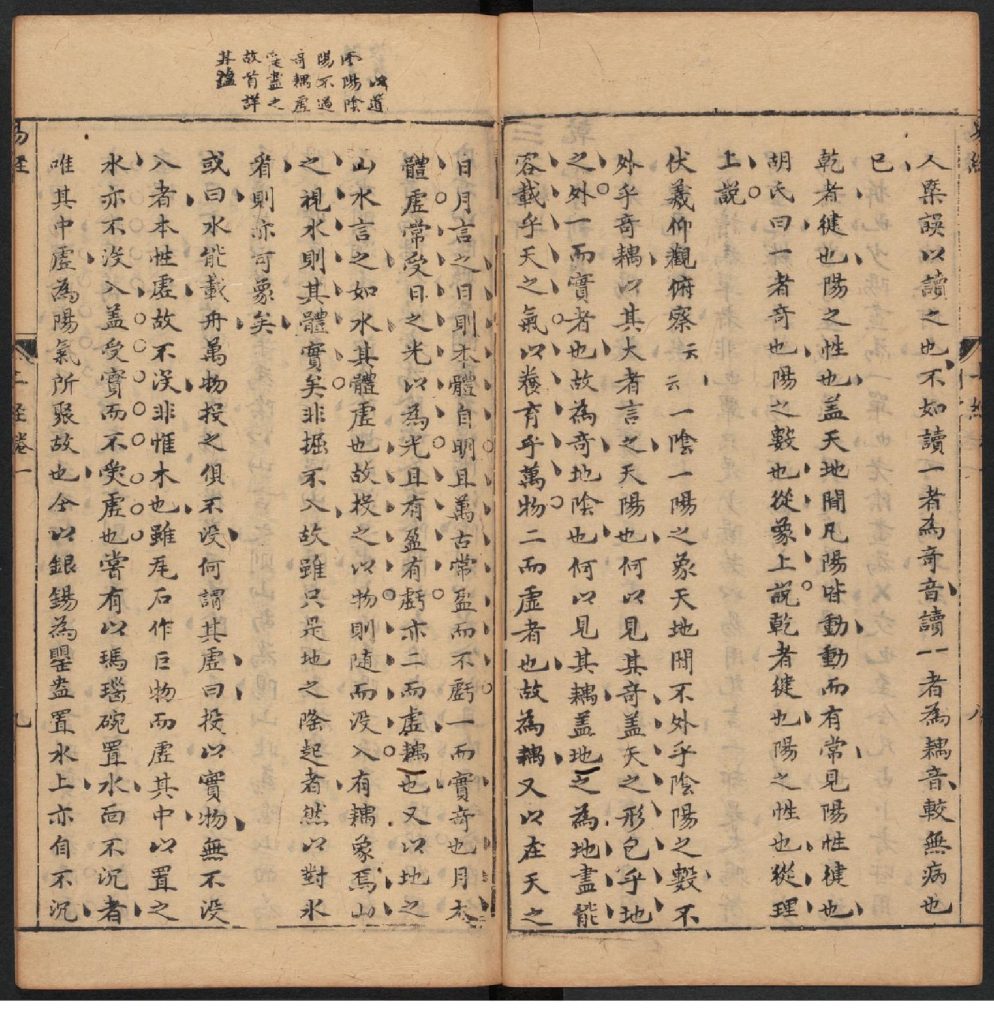 人槩誤以讀之也不如讀一者為奇音讀一者為耦音較無病也
已
乾者健也陽之性也盖天地間凡陽皆動動而有常見陽性健也
胡氏曰一者奇也陽之數也從象上說乾者健也陽之性也從理
上說
伏羲仰觀俯察云云一陰一陽之象天地間不外乎陰陽之數不
外乎奇耦以其大者言之天陽也何以見其奇盖天之形包乎地
之外一而實者也故為奇地陰也何以見其耦盖地之為地盡能
容載乎天之氣以養育乎萬物二而虛者也故為耦又以在天之
日月言之日則本體自明且萬古常盈而不虧一而實奇也月本
體虛常受日之光以為光且有盈有虧亦二而虛耦也又以地之
山水言之如水其體虛也故投之以物則随而没入有耦象焉山
之視水則其體實矣非掘不入故雖只是地之隆起者然以對水
者則亦可象矣
或曰水能載舟萬物投之俱不没何謂其虛曰投以實物無不没
入者本性虛故不没非惟木也雖瓦石作巨物而虛其中以置之
水亦不没入盖受實而不受虛也嘗有以瑪瑙碗置水面不沉者
唯其中虛為陽氣所聚故也今以銀錫為甖盎置水上亦自不沉
以道
陰陽
陽不過
奇耦虛
盡之
故首詳
其蘊
易經
上經卷一
九